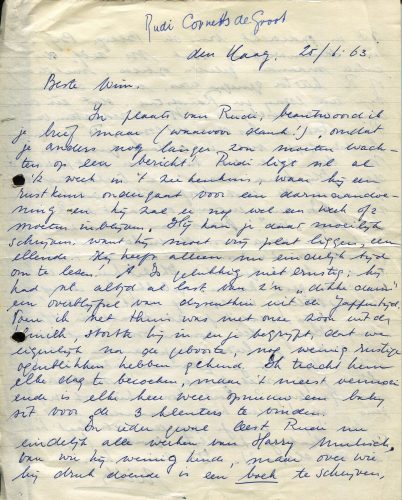 Rudi Cornets de Groot
den Haag, 25/1.63.
Beste Wim.
In plaats van Rudi, beantwoord ik
je brief maar (waarvoor dank!), omdat
je anders nog langer zou moeten wach-
ten op een bericht. Rudi ligt nl. al
'n week in 't ziekenhuis, waar hij een
rustkuur ondergaat voor een darmaandoe-
ning en hij zal er nog wel een week of 2
moeten verblijven. Hij kan je daar moeilijk
schrijven want hij moet vrij plat liggen, een
ellende. Hij heeft alleen nu eindelijk tijd
om te lezen! 't Is gelukkig niet ernstig: hij
had nl. altijd al last van z'n „dikke darm"
een overblijfsel van dysenterie uit de Jappentijd.
Toen ik net thuis was met onze zoon uit de
kliniek, stortte hij in en je begrijpt, dat we
eigenlijk na de geboorte, nog weinig rustige
ogenblikken hebben gehad. Ik tracht hem
elke dag te bezoeken, maar 't meest vermoei-
ende is elke keer weer opnieuw een baby
sit voor de 3 kleuters te vinden.
In ieder geval leest Rudi nu
eindelijk alle werken van Harry Mulisch,
van wie hij weinig kende, maar over wie
hij druk doende is een boek te schrijven,